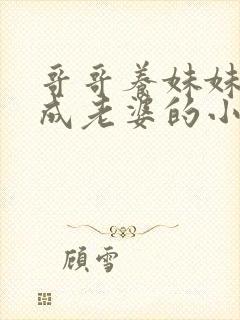 哥哥养妹妹
成老婆的小
顾雪